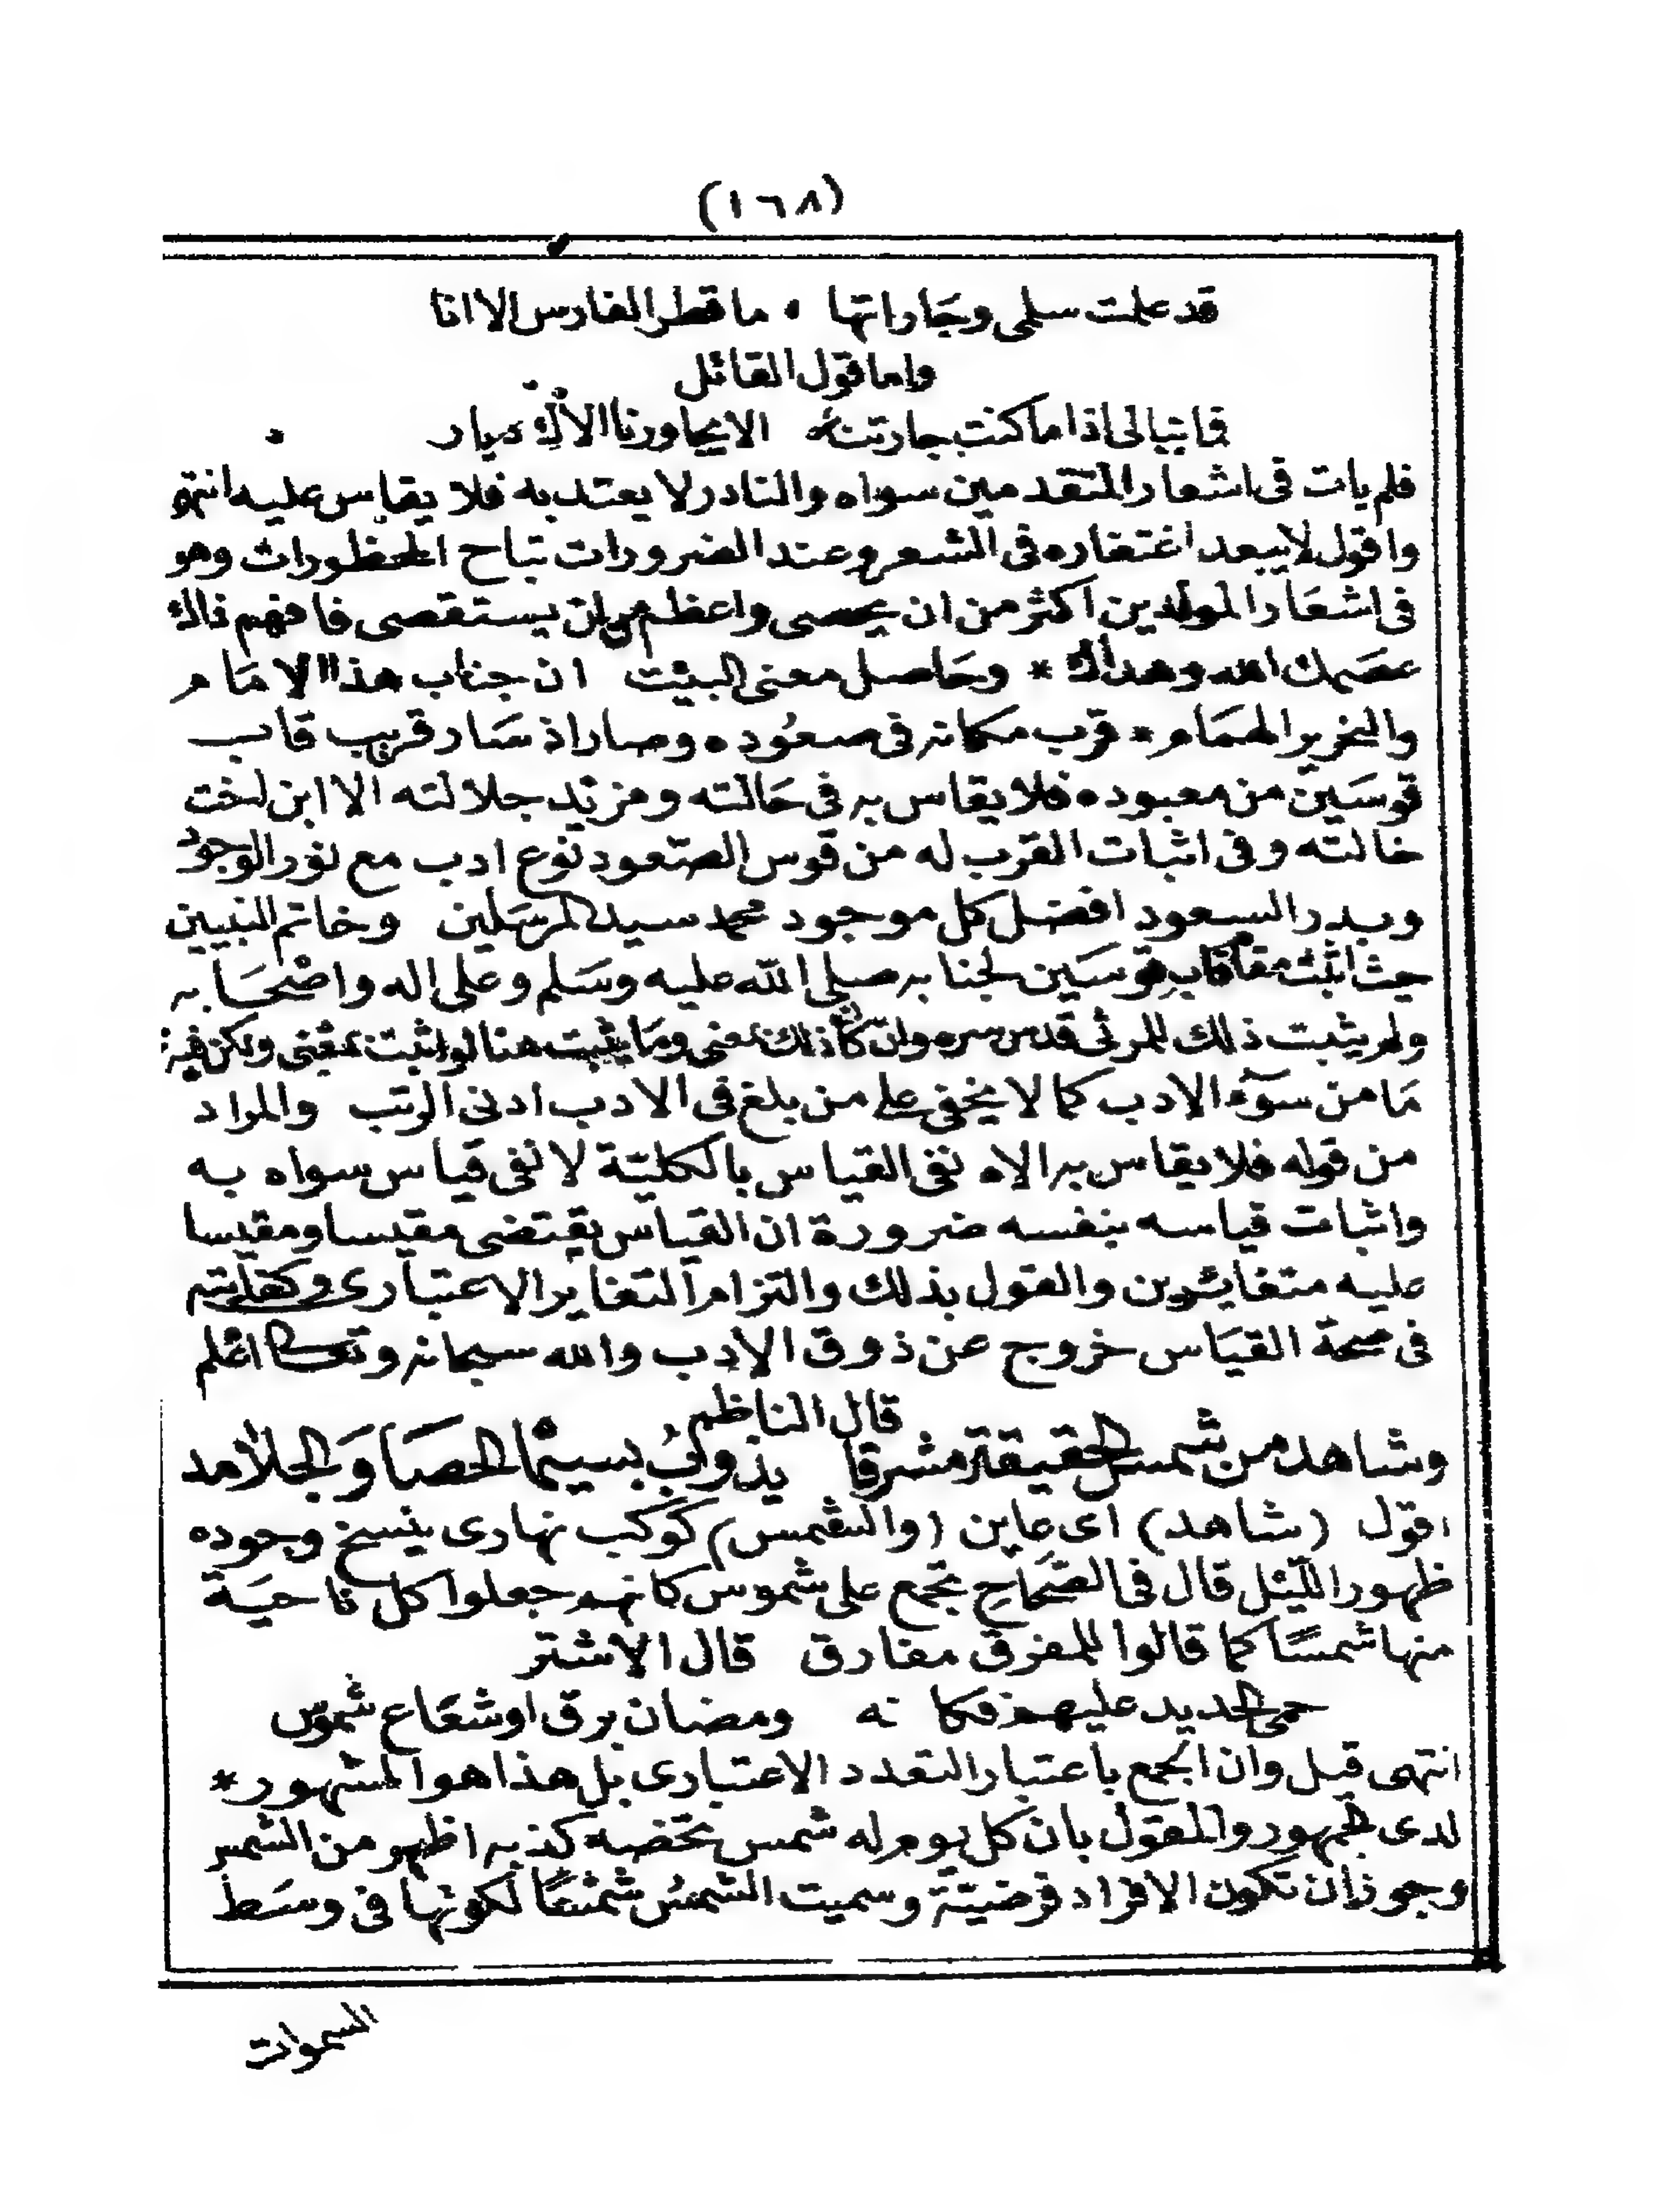 (١٦٨)
قد علمت سلمى وجاراتها • ما قطر الفارس الا انا
واما قول القائل
فما نبالى اذا ما كنت جارتنا الا يجاورنا الاك ديار
فلم يات فى اشعار المتقدمين سواه والنادر لا يعتد به فلا يقاس عليه انتهى
واقول لا يبعد اغتفاره فى الشعر وعند الضرورات تباح المحظورات وهو
فى اشعار المولدين اكثر من ان يحصى واعظم من ان يستقصى فافهم ذاك
عصمك الله وهداك * وحاصل معنى البيت ان جناب هذا الامام
والنحرير الهمام * قرب مكانه فى صعوده وصار اذ سار قريب قاب
قوسين من معبوده فلا يقاس به فى حالته ومزيد جلالته الا ابن اخت
خالته وفى اثبات القرب له من قوس الصعود نوع ادب مع نور الوجود
وبدر السعود افضل كل موجود محمد سيد المرسلين وخاتم النبيين
حيث اثبت مقام قاب قوسين لجنابه صلى الله عليه وسلم وعلى اله واصحابه
ولم يثبت ذلك للمرثى قدس سره وان كان ذلك بمعنى وما يثبت هنا لو اثبت بمعنى ولكن فيه
ما من سوء الادب كما لا يخفى على من بلغ فى الادب ادنى الرتب والمراد
من قوله فلا يقاس به الاه نفى القياس بالكلية لا نفى قياس سواه به
واثبات قياسه بنفسه ضرورة ان القياس يقتضى مقيسا ومقيسا
عليه متغايرين والقول بذلك والتزام التغاير الاعتبارى وكفايته
فى صحة القياس خروج عن ذوق الادب والله سبحانه وتعالى اعلم
قال الناظم
وشاهد من شمس الحقيقة مشرقا يذوب بسيما الحصبا والجلامد
اقول (شاهد) اى عاين (والشمس) كوكب نهارى ينسخ وجوده
ظهور الليل قال فى الصحاح تجمع على شموس كانهم جعلوا كل ناحية
منها شمسا كما قالوا للمفرق مفارق قال الاشتر
حمى الحديد عليهم فكانه ومضان برق او شعاع شموس
انتهى قيل وان الجمع باعتبار التعدد الاعتبارى بل هذا هو المشهور *
لدى الجمهور والقول بان كل يوم له شمس تخصه كذبه اظهر من الشمس
وجوز ان تكون الافراد فرضية وسميت الشمس شمسا لكونها فى وسط
السموات